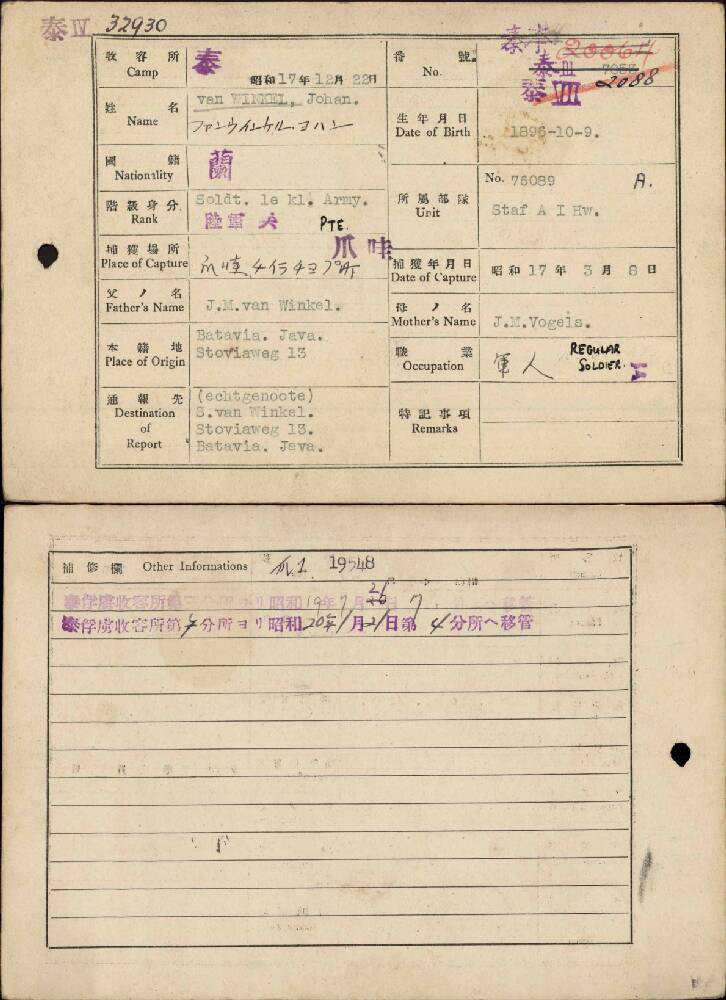 泰IV 32930
収容所 Camp 泰 昭和17年12月22日
番號 No. 20064 泰III 7057 泰VII 2088
姓名 Name van WINKEL, Johan.
ファンウィンケル ヨハン
生年月日 Date of Birth 1896-10-9.
國籍 Nationality 蘭
階級身分 Rank Soldt. 1e kl. Army.
陸軍 PTE.
所屬部隊 Unit No. 76089 A.
Staf A I Hw.
捕獲場所 Place of Capture 爪哇
爪哇
捕獲年月日 Date of Capture 昭和17年3月8日
父ノ名 Father's Name J.M.van Winkel.
母ノ名 Mother's Name J.M.Vogels.
本籍地 Place of Origin Batavia. Java.
Stoviaweg 13
職業 Occupation 軍人 REGULAR SOLDIER.
通報先 Destination of Report (echtgenoote)
S.van Winkel.
Stoviaweg 13.
Batavia. Java.
特記事項 Remarks
補修欄 Other Informations 19548
泰俘虜收容所第 分所ヨリ昭和19年7月26日 7
泰俘虜收容所第7分所ヨリ昭和20年1月21日第4分所ヘ移管